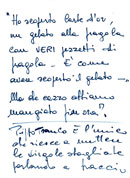 "Ho scoperto l'arte d'or,
un gelato alla fragola
con VERI pezzetti di
fragola — È come
aver scoperto il gelato —
Ma che cazzo abbiamo
mangiato finora?"
Pippo Franco È l'unico
che riesce a mettere
le virgole sbagliate
parlando a braccio